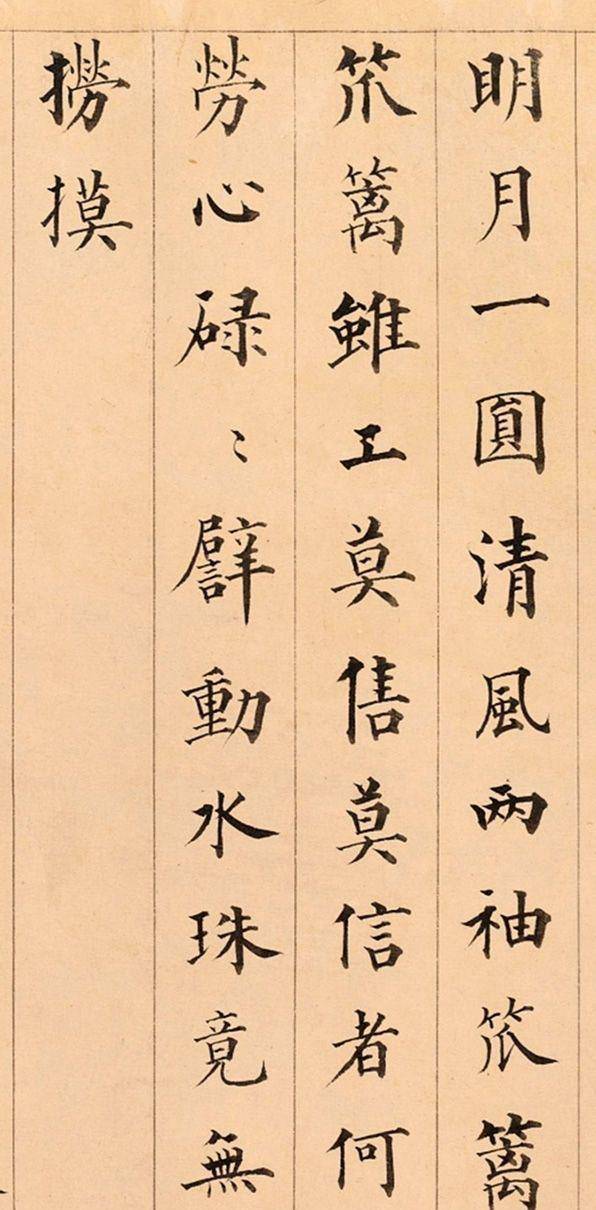 明月一圓清風两袖笊籬
笊籬雖工莫售莫信者何
勞心碌〻譬動水珠竟無
撈摸